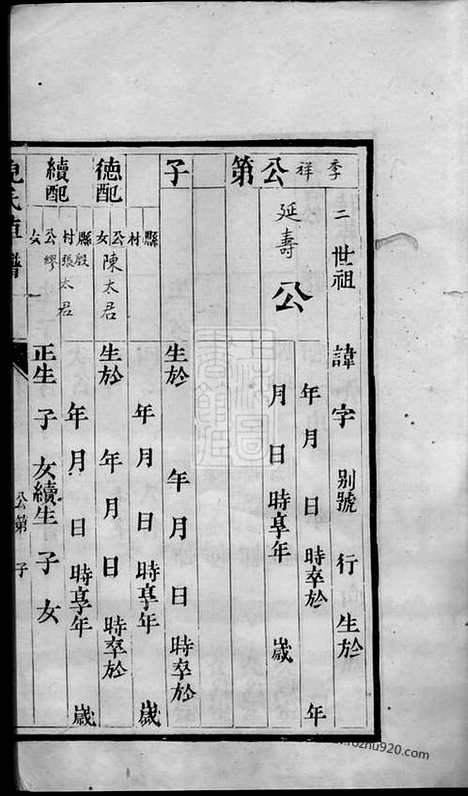 季祥公第 子
二世祖 延壽公
諱 字 別號 行 生於
年 月 日 時卒於 年
月 日 時享年 歲
德配 縣 村 公女陳太君
生於 年 月 日 時卒於
年 月 日 時享年 歲
續配 縣殷村張太君 公繆 女
生於 年 月 日 時卒於
年 月 日 時享年 歲
正生 子 女續生 子 女
公第 子
氏直譜
ozhu920.com